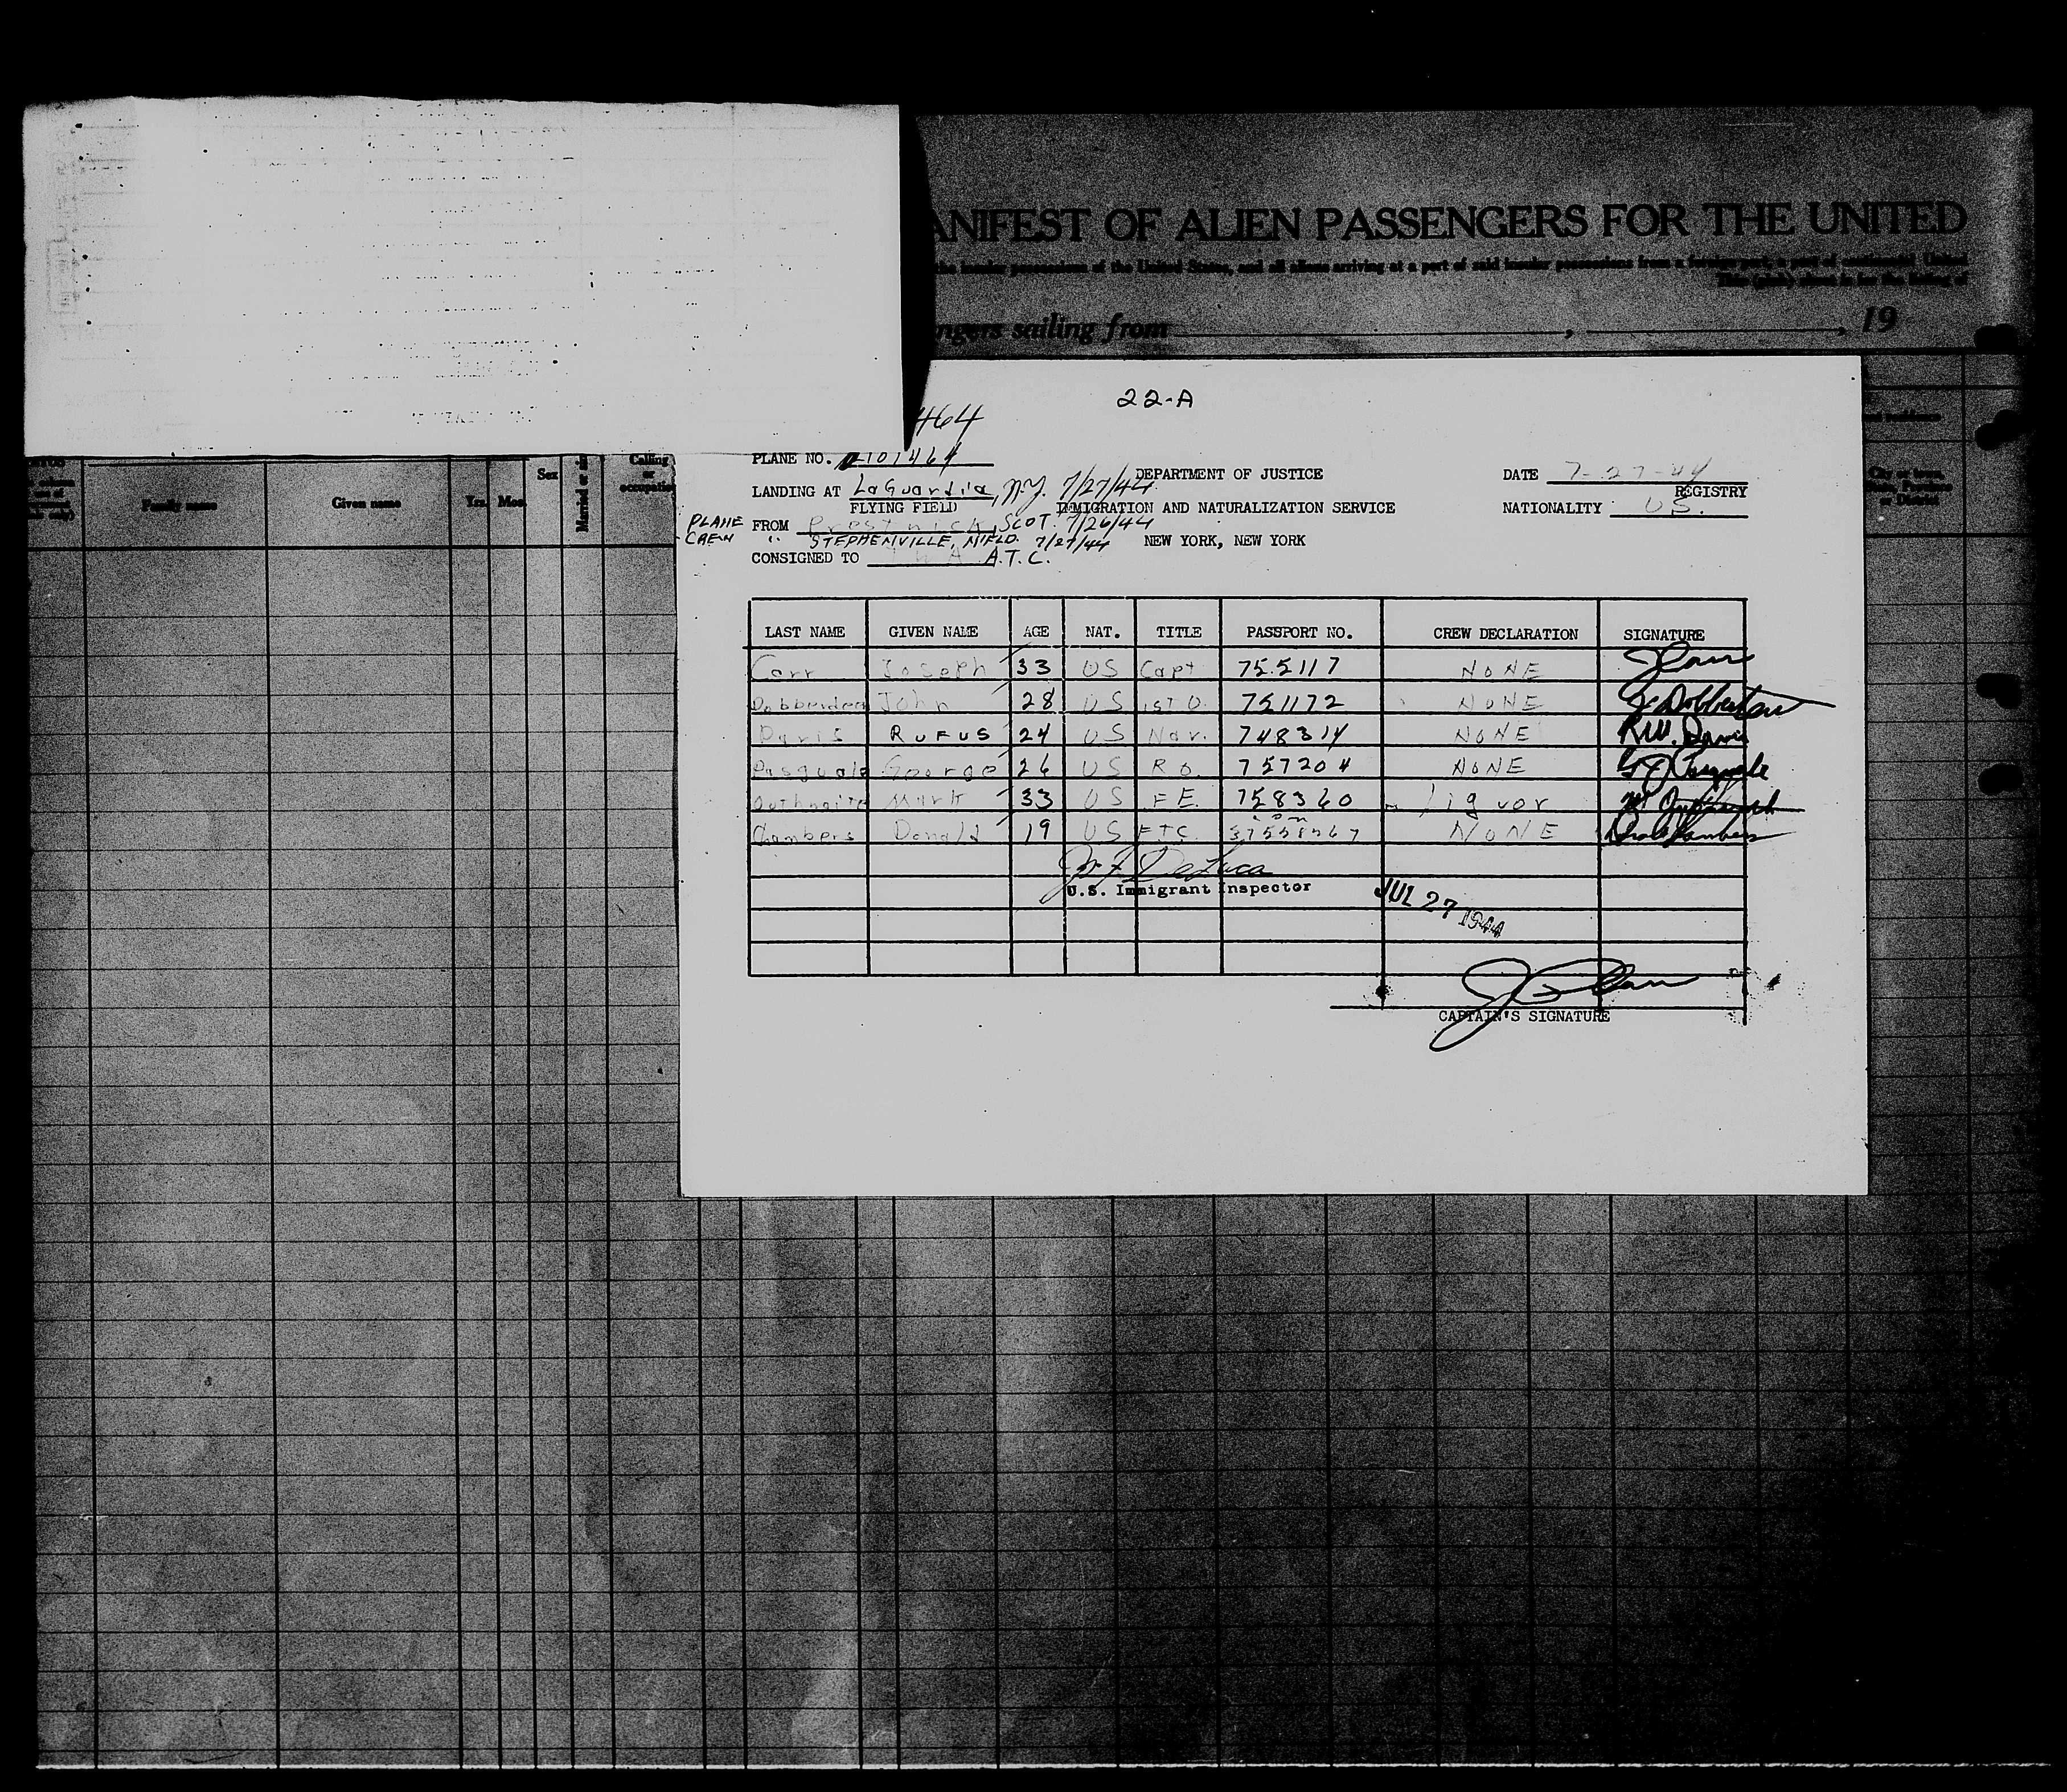 ANIFEST OF ALIEN PASSENGERS FOR THE UNITED
the insular possessions of the United States, and all aliens arriving at a port of said insular possessions from a foreign port, a port of continental United
ngers sailing from , , 19
22-A
464
PLANE NO. 101464
DEPARTMENT OF JUSTICE
DATE 7-27-44
LANDING AT LaGuardia, N.Y. 7/27/44
REGISTRY
FLYING FIELD
IMMIGRATION AND NATURALIZATION SERVICE
NATIONALITY US.
PLANE FROM Prestwick, SCOT. 7/26/44
CREW " STEPHENVILLE, NFLD. 7/27/44
NEW YORK, NEW YORK
CONSIGNED TO A.T.C.
Family name Given name Yrs. Mos. Sex Married or sin Calling or occupation
City or town,
LAST NAME GIVEN NAME AGE NAT. TITLE PASSPORT NO. CREW DECLARATION SIGNATURE
Carr Joseph 33 US Capt 755117 NONE J Carr
John 28 US 1st O. 751172 NONE
Davis RUFUS 24 US Nav. 748314 NONE R.W. Davis
Pasquale George 26 US R.O. 757204 NONE
Mark 33 US F.E. 758360 liquor
Chambers Donald 19 US FTC. NONE
De Luca
U.S. Immigrant Inspector
JUL 27 1944
CAPTAIN'S SIGNATURE